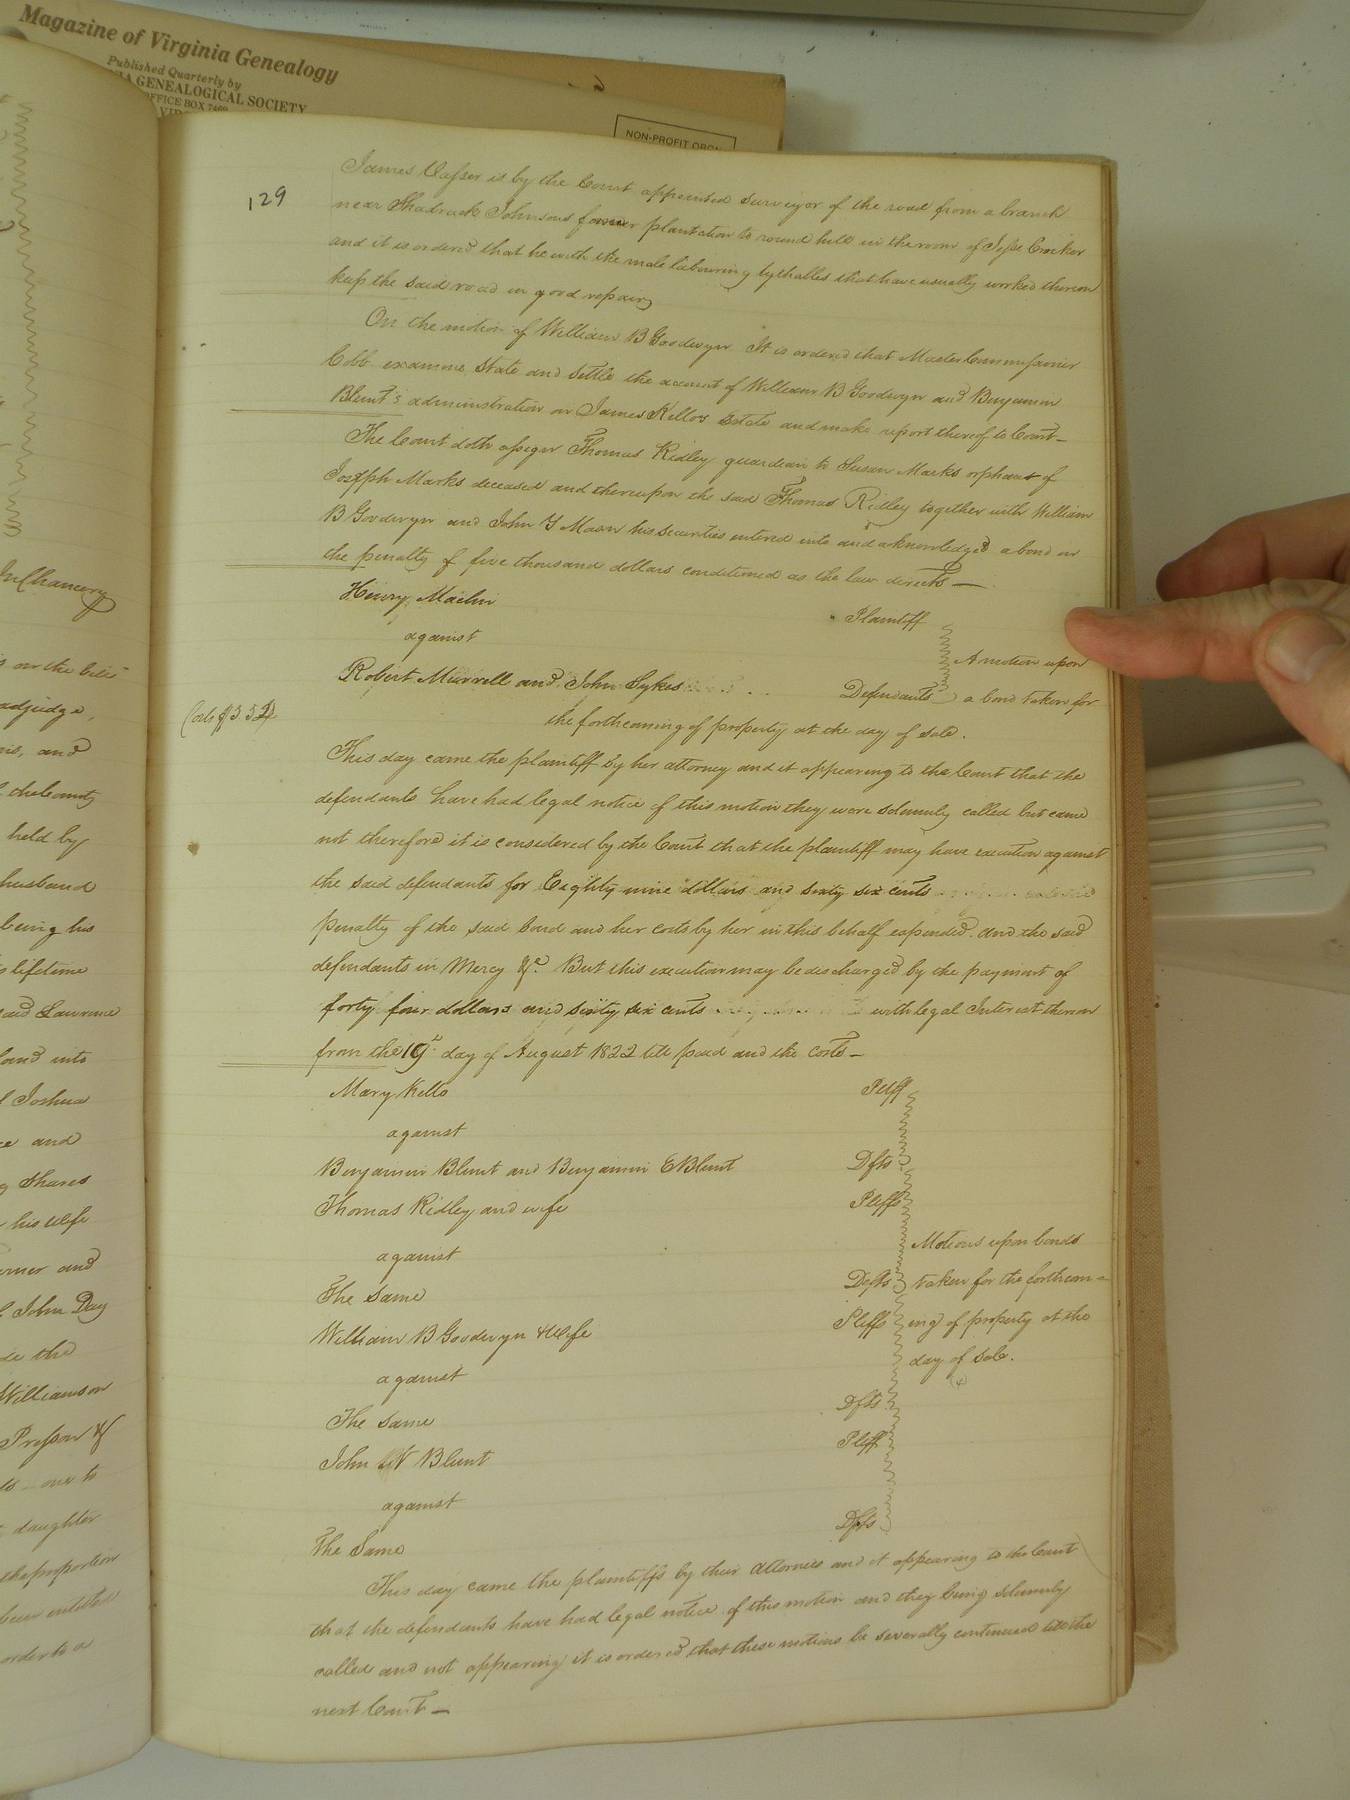 Magazine of Virginia Genealogy
Published Quarterly by
GENEALOGICAL SOCIETY
OFFICE BOX
NON-PROFIT ORGN
129
James Vasser is by the Court appointed Surveyor of the road from a branch
near Shadrack Johnsons former plantation to round hill in the room of Jesse Crocker
and it is ordered that he with the male labouring tythables that have usually worked thereon
keep the said road in good repair
On the motion of William B Goodwyn It is ordered that Master Commissioner
Cobb examine State and Settle the account of William B Goodwyn and Benjamin
Blunt's administration on James Kellos Estate and make report thereof to Court
The Court doth assign Thomas Ridley guardian to Susan Marks orphant of
Joseph Marks deceased and thereupon the said Thomas Ridley together with William
B Goodwyn and John Y Mason his securities entered into and acknowledged a bond in
the penalty of five thousand dollars conditioned as the law directs
Henry Plaintiff
against
A motion upon
Robert Murrell and John Sykes Defendants a bond taken for
the forthcoming of property at the day of sale.
Costs $3.52
This day came the plaintiff by her attorney and it appearing to the Court that the
defendants have had legal notice of this motion they were solemnly called but came
not therefore it is considered by the Court that the plaintiff may have execution against
the said defendants for Eighty nine dollars and sixty six cents
penalty of the said bond and her costs by her in this behalf expended. and the said
defendants in Mercy &c. But this execution may be discharged by the payment of
forty four dollars and sixty six cents with legal Interest thereon
from the 19th day of August 1822 till paid and the costs
Mary Kello Pltff
against
Benjamin Blunt and Benjamin E Blunt Dfts
Thomas Ridley and wife Pltffs
Motions upon bonds
against
The Same Defts taken for the forthcom=
William B Goodwyn & Wife Pltffs ing of property at the
day of sale.
against
(4)
The Same Dfts
John W Blunt Pltff
against
The Same Dfts
This day came the plaintiffs by their attornies and it appearing to the Court
that the defendants have had legal notice of this motion and they being solemnly
called and not appearing it is ordered that these motions be severally continued till the
next Court
In Chancery
on the bill
adjudge,
and
the County
held by
husband
being his
lifetime
said Lawrence
land into
Joshua
and
Shares
his wife
and
John Day
the
Williamson
Presson &
to
daughter
the proportion
been entitled
order to a